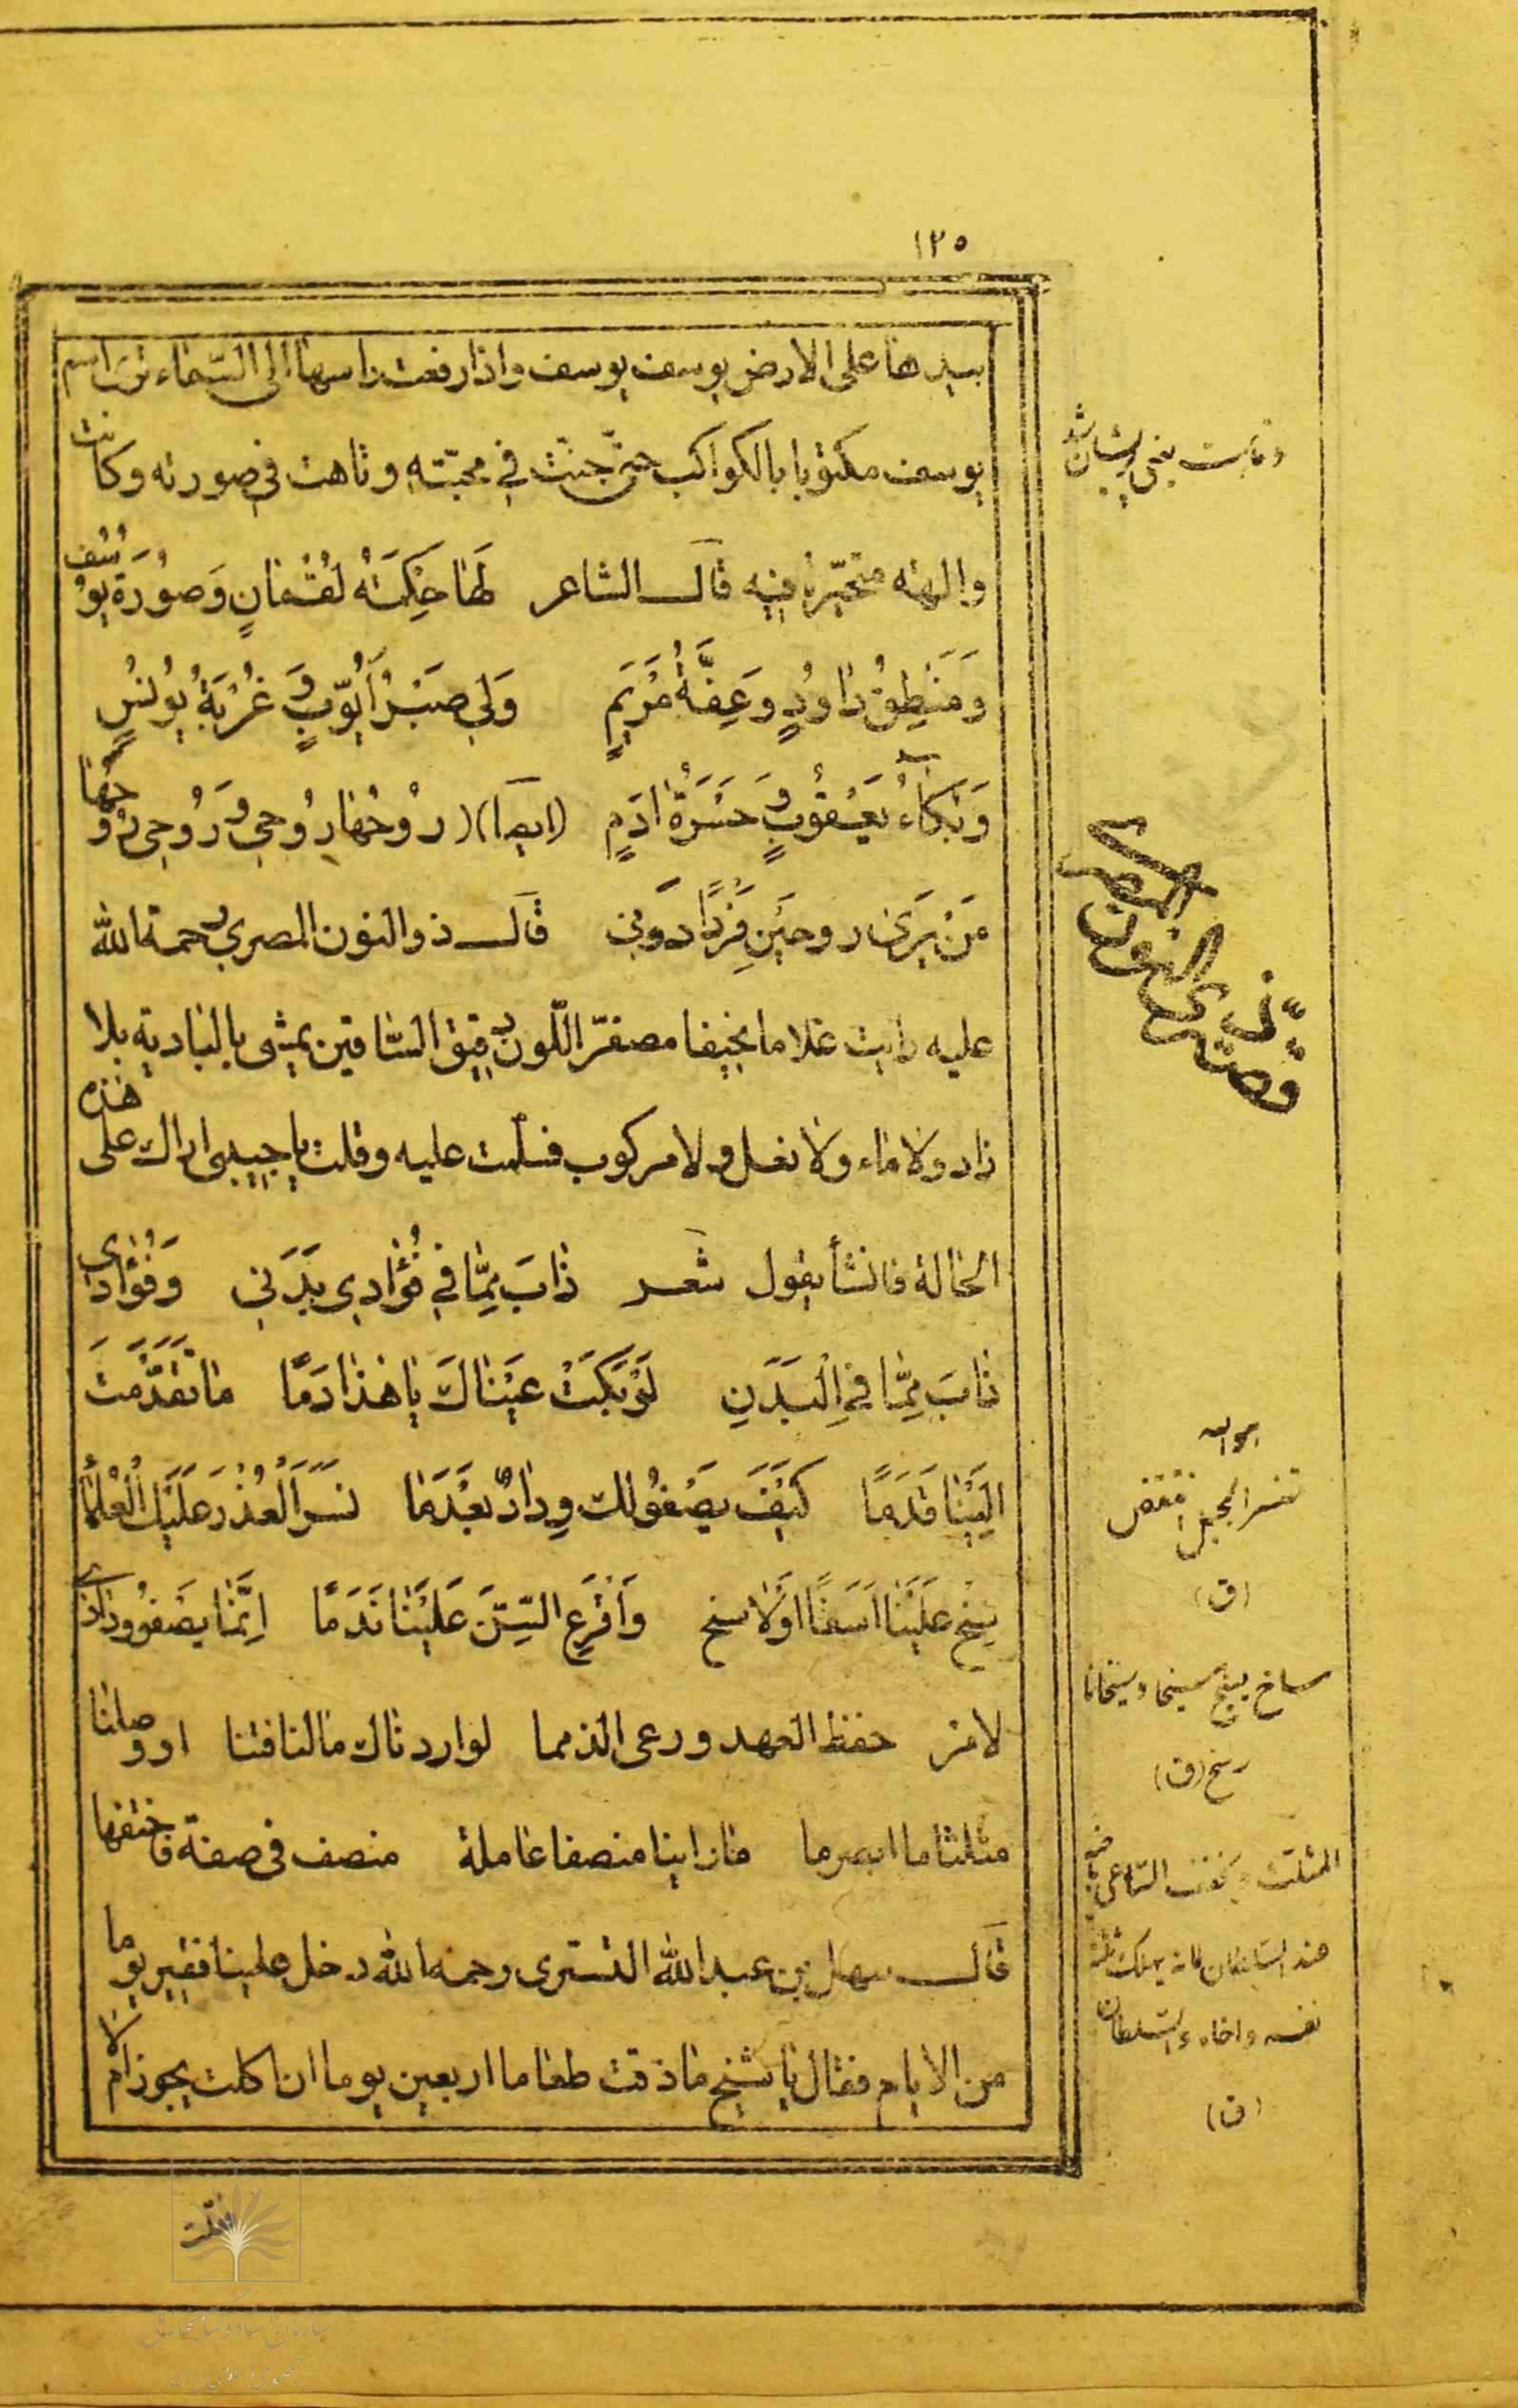 ١٢٥
بيدها على الارض يوسف يوسف واذا رفعت راسها الى السماء ترى اسم
يوسف مكتوبا بالكواكب حتى جنت في محبته وتاهت في صورته وكانت
والهة متحيرة فيه قال الشاعر لَهَا حِكمَةُ لُقْمَانٍ وَصُورَةُ يُوسُفٍ
وَمَنْطِقُ دَاوُدٍ وَعِفَّةُ مَرْيَمٍ وَلِي صَبْرُ أَيُّوبٍ وَغُرْبَةُ يُونُسٍ
وَبُكَاءُ يَعْقُوبٍ وَحَسْرَةُ ادَمٍ (ايضا) رُوحُهَا رُوحِي وَرُوحِي رُوحُهَا
مَنْ يَرَى رُوحَيْنِ فَرْدًا دوني قال ذو النون المصري رحمة الله
عليه رايت غلاما نحيفا مصفرّ اللّون دقيق الساقين يمشي بالبادية بلا
زاد ولا ماء ولا نعل ولا مركوب فسلمت عليه وقلت يا حبيبي اراك على هذه
الحالة فانشأ يقول شعر ذَابَ مِمَّا فِي فُؤَادِي بَدَنِي وَفُؤَادِي
ذَابَ مِمَّا فِي الْبَدَنِ لَوْ بَكَتْ عَيْنَاكَ يَا هَذَا دَمًا مَا تَقَدَّمْتَ
اِلَيْنَا قَدَمًا كَيْفَ يَصْفُو لَكَ وِدَادٌ بَعْدَمَا نَسَرَ الْعُذْرَ عَلَيْكَ الْعُلَمَا
سِخْ عَلَيْنَا اَسَفًا اَوْلَا سِخْ وَاَقْرَعِ السِّنَّ عَلَيْنَا نَدَمًا اِنَّمَا يَصْفُو وِدَادِي
لامرء حفظ العهد ورعى الذمما لو اردناك ما لنا فتنا او وصلنا
مثلثا ما ابصرما ما راينا منصفا عاملة منصف في صفة فاختفها
قال سهل بن عبد الله التستري رحمه الله دخل علينا فقير يوما
من الايام فقال يا شيخ ما ذقت طعاما اربعين يوما ان اكلت يجوز ام لا
قصة ذي النون المصري
(ق)
ساخ يسيخ سيخا وسيخانا
رسخ (ق)
المثلث
نفسه واخاه والسلطان
(ق)
فقلت